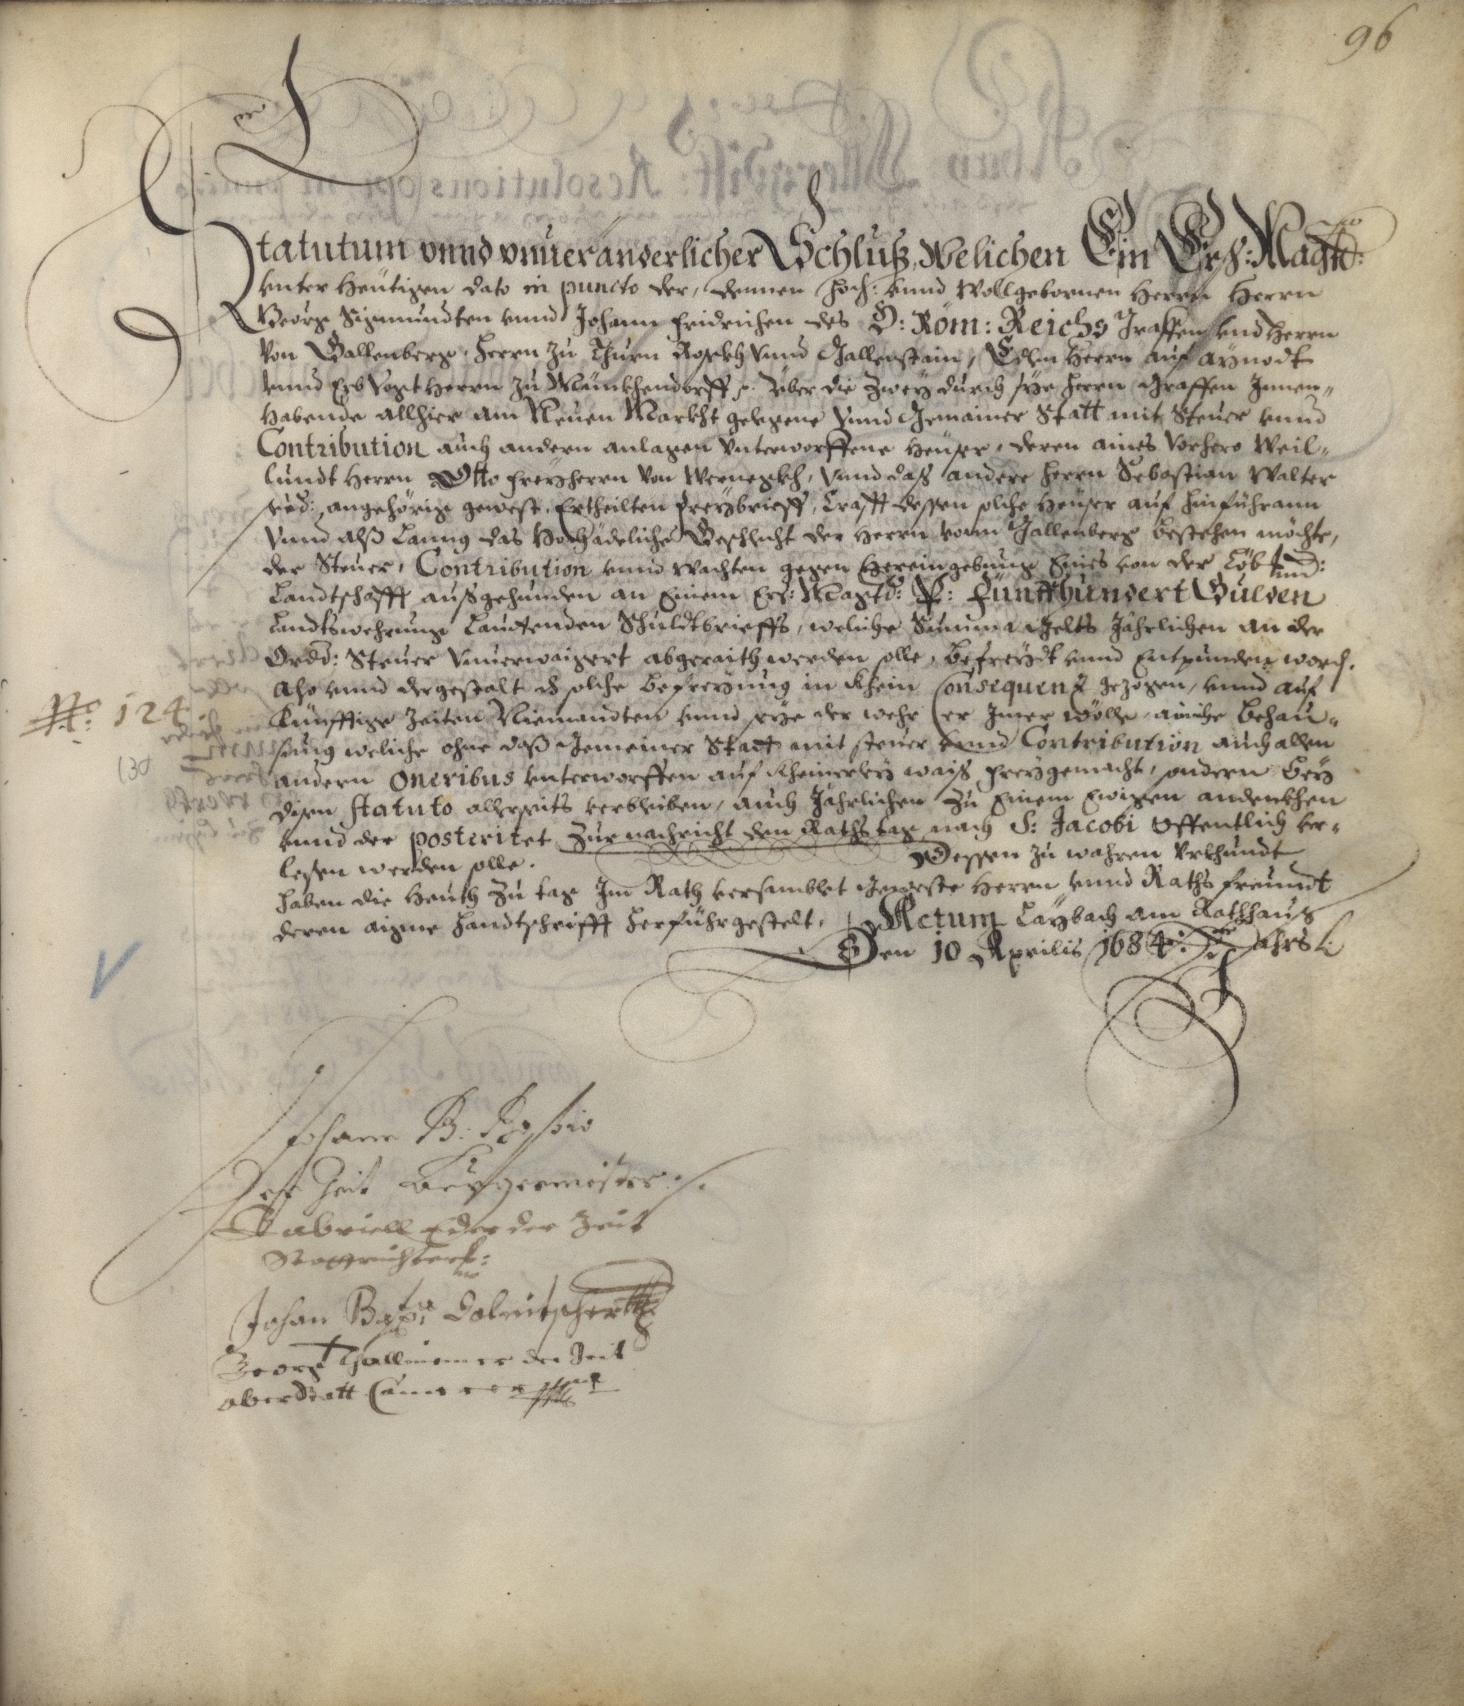 96
Statutum vnnd vnueränderlicher Schluß, Welichen Ein Ers: Magtt:
vnter heütigen dato in puncto der, dennen Hoch: vnnd Wollgebornen Herrn Herrn
Georg Sigmundten vnnd Johann Fridrichen des H: Röm: Reichs Graffen vnd Herrn
von Gallenberg, Herrn zu Thurn Roßekh vnnd Gallenstain, Edlen Herrn auf aynodt
vnnd Erb Vogt Herrn zu Münkhendorff p. Über die zwey durch sye Herrn Graffen Innen-
habende allhier am Neuen Markht gelegene vnnd Gemainer Statt mit Steuer vnnd
Contribution auch andern anlagen vnterworffene heüser, deren aines vorhero Weil-
lundt Herrn Otto Freyherrn von Wernegkh, vnnd daß andere Herrn Sebastian Walter
angehörig gewest, Ertheilten Freybrieff, Crafft dessen solche heüser auf hinführann
vnnd alß Lanng das Hochadeliche Geschlecht der Herrn vonn Gallenberg bestehen möchte,
der Steuer, Contribution vnnd wachten gegen hereingebung eines von der Löb:
Landtschafft außgehunden an Einem Ers: Magtt: P: Fünffhundert Gulden
Landtswehrung Lauttenden Schuldtbrieffs, weliche Summa Gelts Jährlichen an der
Ordi: Steuer vnuerwaigert abgeraith werden solle, befreydt vnnd Entpunden word.
Also vnnd dergestalt dß solche befreyung in khein Consequenz gezogen, vnnd auf
Künfftige Zeiten Niemandten vnnd seye der wehr er Imer wölle, ainiche behau-
sung weliche ohne daß Gemeiner Statt mit steuer vnnd Contribution auch allen
andern oneribus vnterworffen auf kheinerley waiß freygemacht, sondern bey
disen statuto allerseits verbleiben, auch Jährlichen zu Einem Ewigen andenkhen
vnnd der posteritet zur nachricht den Rathstag nach S: Jacobi öffentlich ver-
lesen werden solle. Dessen zu wahren vrkhundt
haben die heuth zu tag Im Rath versamblet geweste Herrn vnnd Raths freundt
deren aigne handtschrifft herführgestelt. Actum Laybach am Rathhauß
Den 10 Aprilis 1684. Jahrs
No: 124
130
Johann B:
der Zeit Burgermaister
Gabriell Eder der Zeit
Stattrichter
Johan Bapta Dolnitscher
Georg Thallmeiner der Zeit
oberStatt Camerer